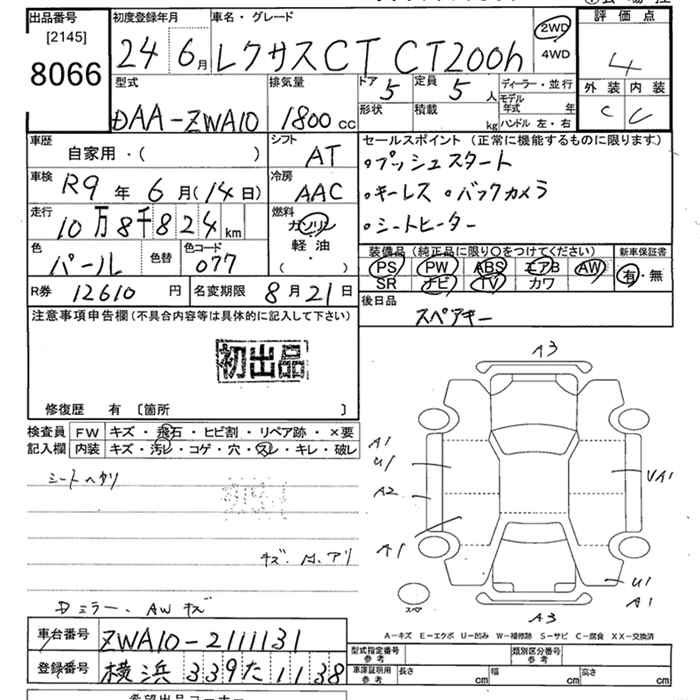 出品番号 初度登録年月 車名・グレード 評価点
[2145]
8066
24 6月 レクサスCT CT200h 2WD 4WD 4
型式 排気量 ドア 定員 ディーラー・並行 外装 内装
DAA-ZWA10 1800cc 5 5人 モデル年式 年 C C
形状 積載 kg ハンドル 左・右
車歴 自家用・( ) シフト AT
セールスポイント(正常に機能するものに限ります)
・プッシュスタート
車検 R9年 6月(14日) 冷房 AAC
・キーレス ・バックカメラ
走行 10万8千824km 燃料 ガソリン 軽油 ・( )
・シートヒーター
色 パール 色替 色コード 077
装備品(純正品に限り○をつけてください) 新車保証書
PS PW ABS エアB AW 有・無
SR ナビ TV カワ
R券 12610円 名変期限 8月21日
後日品
スペアキー
注意事項申告欄(不具合内容等は具体的に記入して下さい)
初出品
修復歴 有 〔箇所 〕
検査員 FW キズ・飛石・ヒビ割・リペア跡・×要
記入欄 内装 キズ・汚レ・コゲ・穴・スレ・キレ・破レ
シートヘタリ
Dミラー、AWキズ
A3
A1
U1
A2
A1
UA1
U1
A1
A3
スペア
A-キズ E-エクボ U-凹み W-補修跡 S-サビ C-腐食 XX-交換済
車台番号 ZWA10-2111131
登録番号 横浜 339た1138
型式指定番号 参考 類別区分番号 参考
車庫証明用 参考 長さ cm 幅 cm 高さ cm
希望出品コーナー